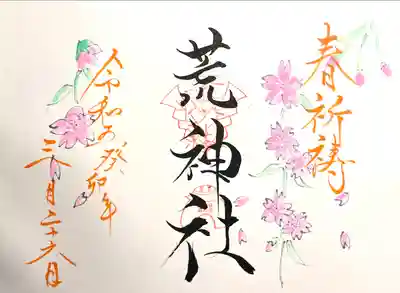 春祈祷
荒神社
令和五癸卯年
三月二十六日